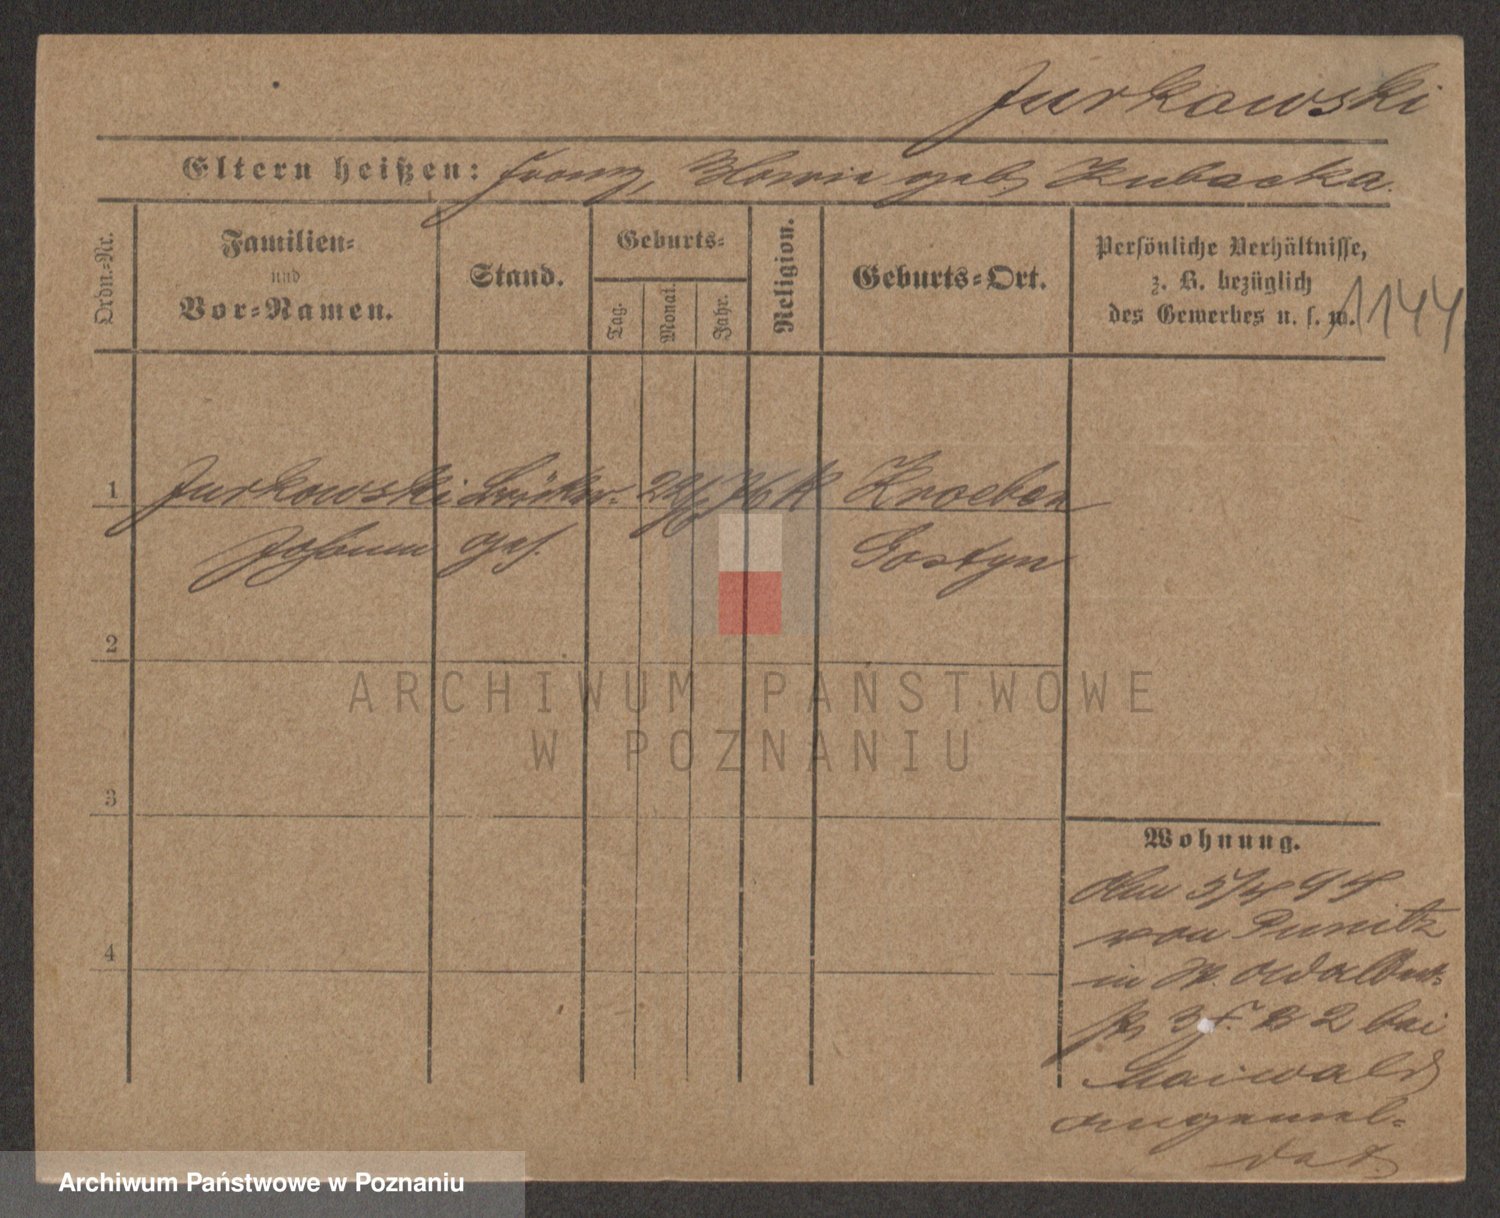 Jurkowski
Eltern heißen: Franz, Maria geb. Kubacka.
Ordn.-Nr.
Familien-
und
Vor-Namen.
Stand.
Geburts-
Tag.
Monat.
Jahr.
Religion.
Geburts-Ort.
Persönliche Verhältnisse,
z. B. bezüglich
des Gewerbes u. s. w.
1144
1 Jurkowski 76 K Kroeben
Johann ges. Gostyn
2
ARCHIWUM PAŃSTWOWE
W POZNANIU
3
Wohnung.
5/4 94
von Punitz
in St. Adalbert-
3 2 bei
4
Maiwald
angemel-
det.
Archiwum Państwowe w Poznaniu